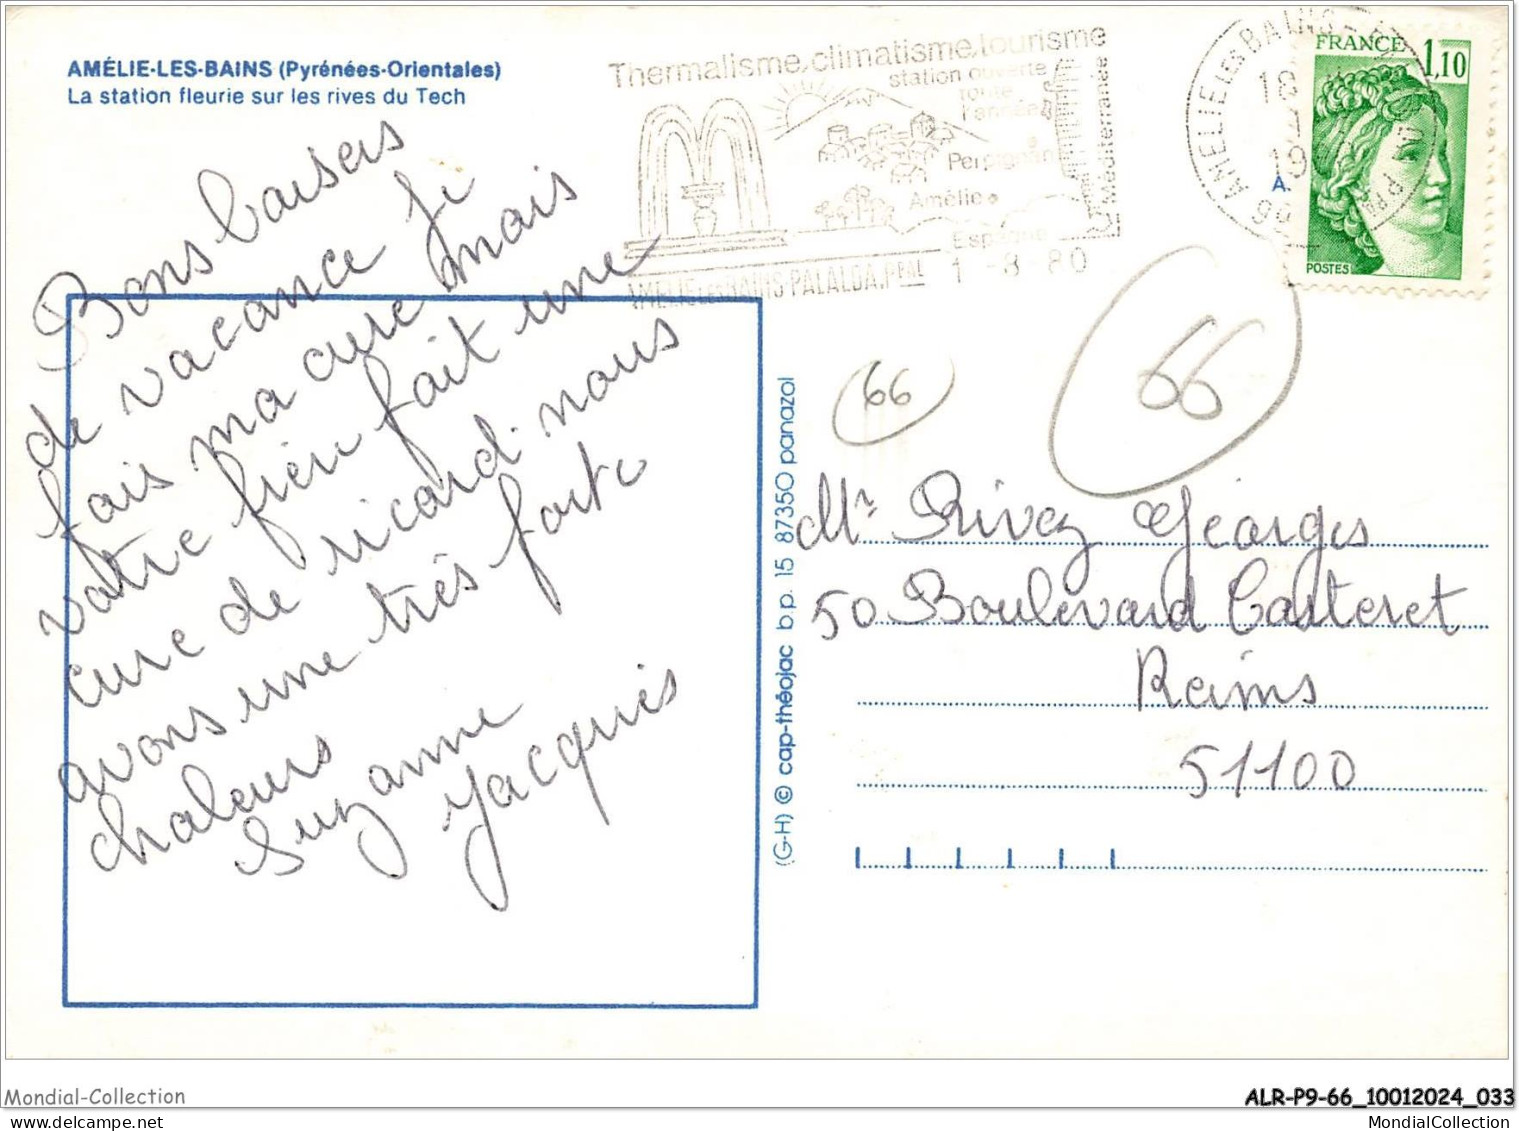 AMÉLIE-LES-BAINS (Pyrénées-Orientales)
La station fleurie sur les rives du Tech
Bons baisers
de vacance je
fais ma cure mais
votre frère fait une
cure de ricard. nous
avons une très forte
chaleurs
Suzanne
Jacquies
Thermalisme, climatisme, tourisme
station ouverte
toute
l'année
Perpignan
Amélie
Espagne
Méditerranée
AMELIE LES BAINS-PALALDA.Ppal
1 -8-80
66 AMELIE LES BAINS
18
19
A.
FRANCE
1,10
POSTES
66
66
(G-H) © cap-théojac b.p. 15 87350 panazol
Mr Rivez Géorges
50 Boulevard Carteret
Reims
51100
Mondial-Collection
ALR-P9-66_10012024_033
MondialCollection